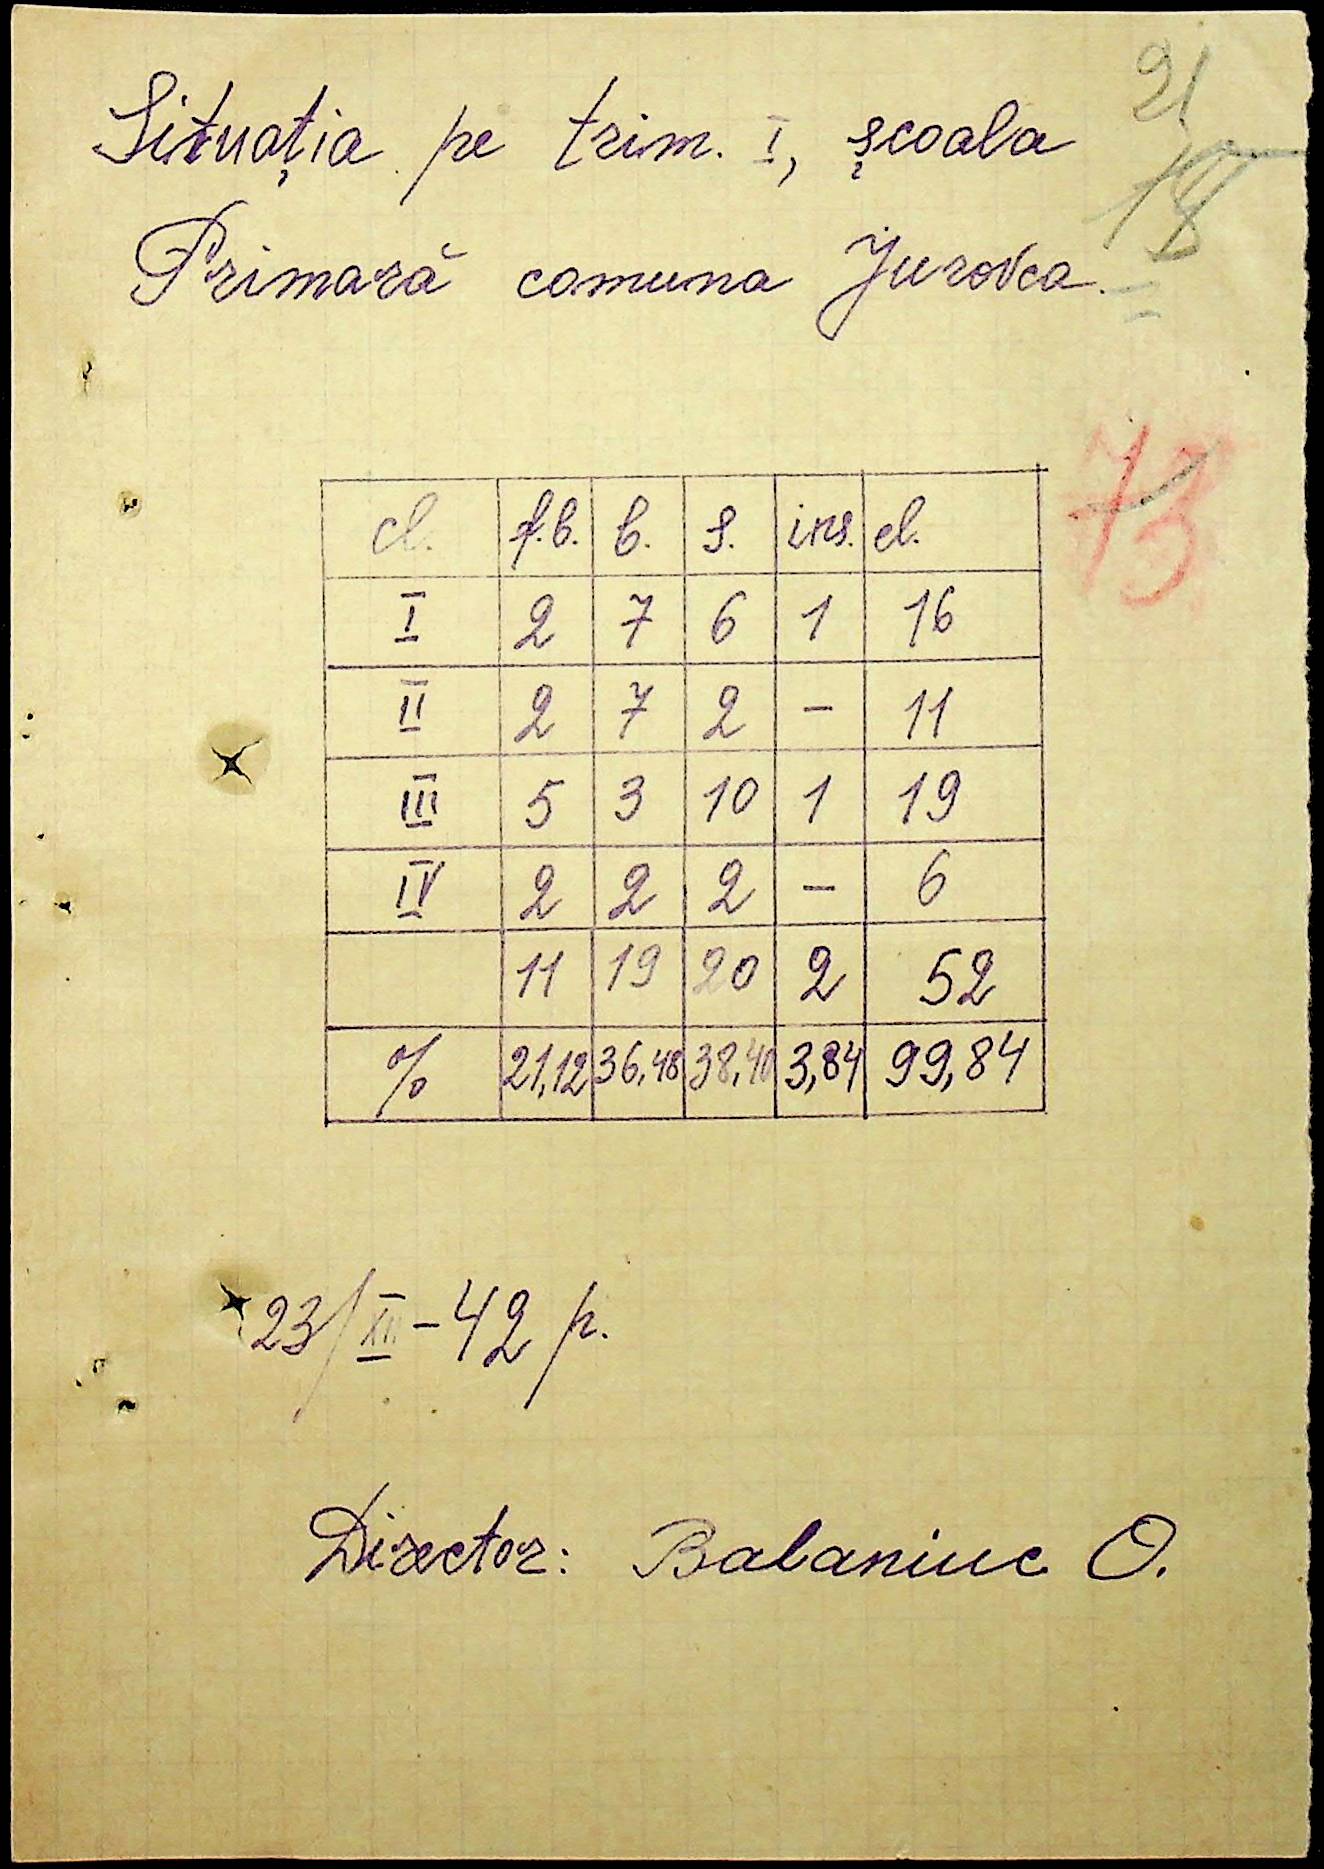 21
18
Situația pe trim. I, școala
Primară comuna Jurovca.
73
cl. f.b. b. s. ins. el.
I 2 7 6 1 16
II 2 7 2 – 11
III 5 3 10 1 19
IV 2 2 2 – 6
11 19 20 2 52
% 21,12 36,48 38,40 3,84 99,84
23/XII – 42 p.
Director: Balaniuc O.